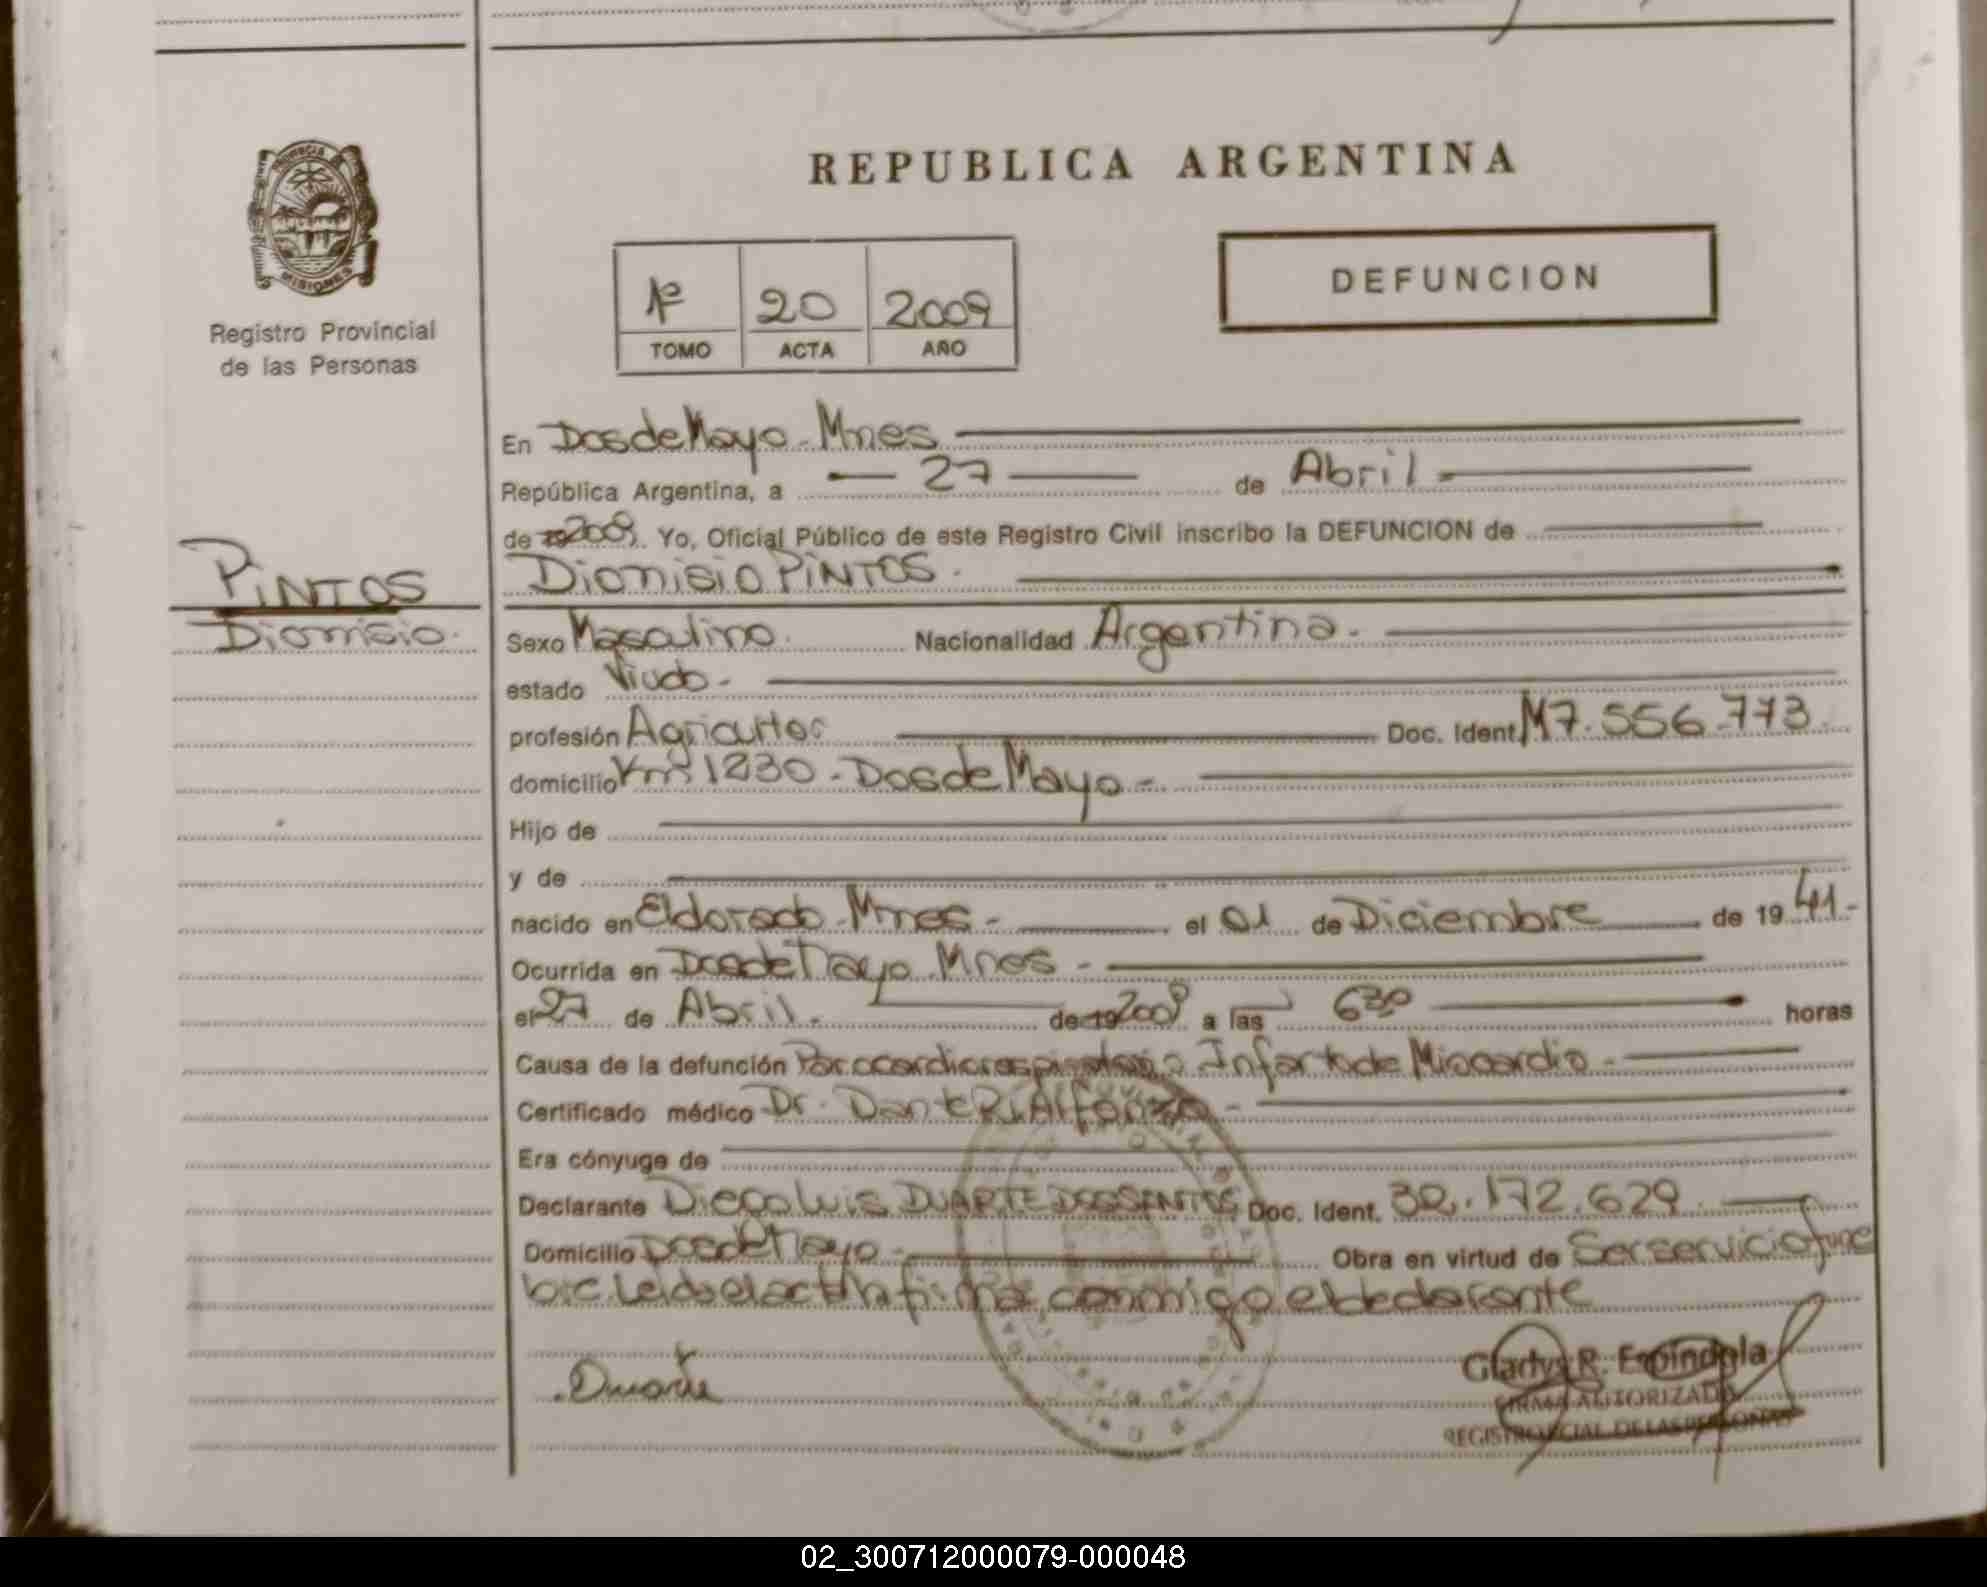 REPUBLICA ARGENTINA
PROVINCIA
MISIONES
Registro Provincial
de las Personas
1º 20 2009
TOMO ACTA AÑO
DEFUNCION
En Dos de Mayo - Mnes
República Argentina, a 27 de Abril
de 2009. Yo, Oficial Público de este Registro Civil inscribo la DEFUNCION de
PINTOS
Dionisio.
Dionisio PINTOS.
Sexo Masculino. Nacionalidad Argentina.
estado Viudo.
profesión Agricultor Doc. Ident. M7.556.773.
domicilio Km 1230 - Dos de Mayo -
Hijo de
y de
nacido en Eldorado - Mnes - el 01 de Diciembre de 1941-
Ocurrida en Dos de Mayo Mnes -
el 27 de Abril. de 2009 a las 630 horas
Causa de la defunción Paro cardiorespiratorio Infarto de Miocardio -
Certificado médico Dr. Dante R. Alfonzo -
Era cónyuge de
Declarante Diego Luis DUARTE DOS SANTOS Doc. Ident. 32.172.629.
Domicilio Dos de Mayo - Obra en virtud de Ser servicio fúne
bre Leída el acta la firma conmigo el declarante
Duarte
Gladys R. Espindola
FIRMA AUTORIZADA
REGISTRO PCIAL. DE LAS PERSONAS
02_300712000079-000048